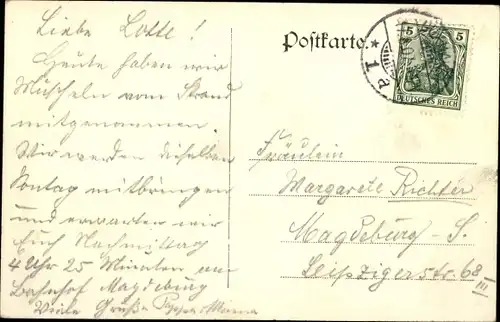 Liebe Lotte!
Heute haben wir
Muscheln vom Strand
mitgenommen.
Wir werden dieselben
Sontag mitbringen
und erwarten wir
Euch Nachmittag
4 Uhr 25 Minuten am
Bahnhof Magdeburg
Viele Grüße Mama
Postkarte.
5 5
DEUTSCHES REICH
* 1 a
Fräulein
Margarete Richter
Magdeburg - S.
Leipzigerstr. 68
III